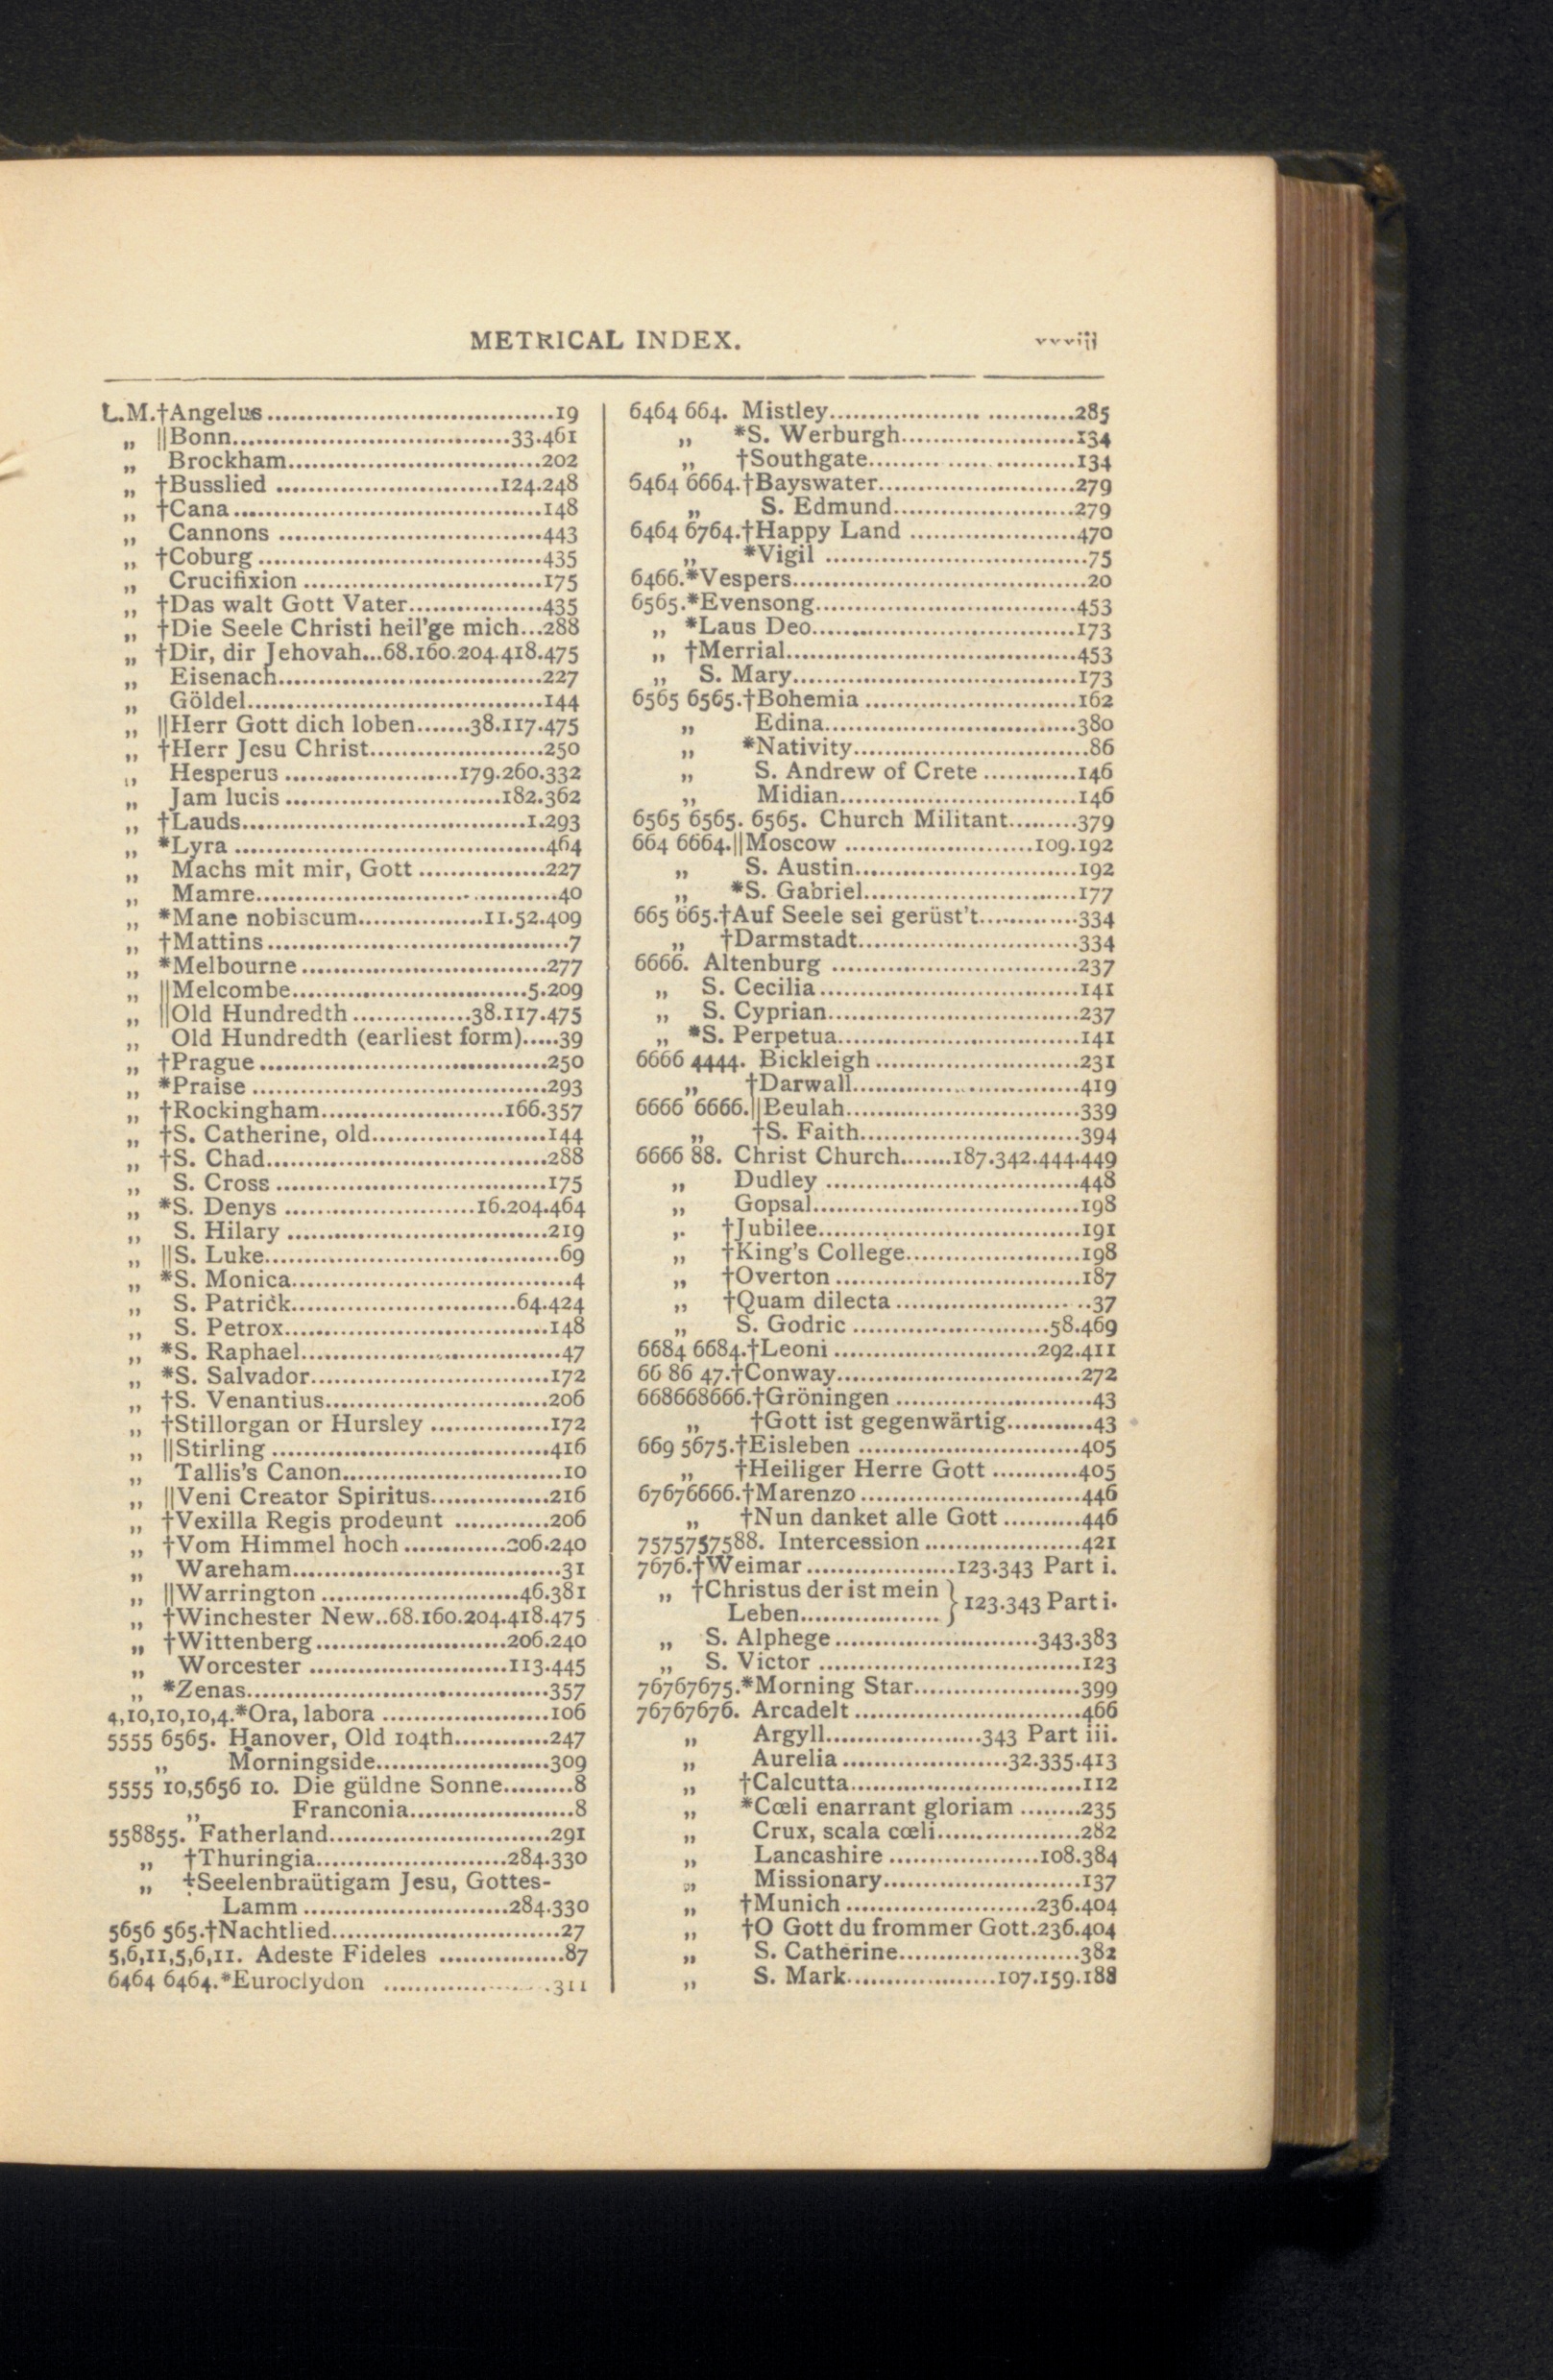 METRICAL INDEX.
xxxiij
L.M.†Angelus....................................19
„ ||Bonn...................................33.461
„ Brockham................................202
„ †Busslied ............................124.248
„ †Cana.......................................148
„ Cannons .................................443
„ †Coburg....................................435
„ Crucifixion ..............................175
„ †Das walt Gott Vater.................435
„ †Die Seele Christi heil'ge mich...288
„ †Dir, dir Jehovah...68.160.204.418.475
„ Eisenach.................................227
„ Göldel.....................................144
„ ||Herr Gott dich loben.......38.117.475
„ †Herr Jesu Christ......................250
„ Hesperus ......................179.260.332
„ Jam lucis...........................182.362
„ †Lauds....................................1.293
„ *Lyra .......................................464
„ Machs mit mir, Gott ................227
„ Mamre......................................40
„ *Mane nobiscum................11.52.409
„ †Mattins......................................7
„ *Melbourne...............................277
„ ||Melcombe..............................5.209
„ ||Old Hundredth ...............38.117.475
„ Old Hundredth (earliest form).....39
„ †Prague....................................250
„ *Praise .....................................293
„ †Rockingham.......................166.357
„ †S. Catherine, old......................144
„ †S. Chad...................................288
„ S. Cross ..................................175
„ *S. Denys ........................16.204.464
„ S. Hilary ................................219
„ ||S. Luke.....................................69
„ *S. Monica...................................4
„ S. Patrick............................64.424
„ S. Petrox.................................148
„ *S. Raphael.................................47
„ *S. Salvador..............................172
„ †S. Venantius............................206
„ †Stillorgan or Hursley ...............172
„ ||Stirling ...................................416
„ Tallis's Canon............................10
„ ||Veni Creator Spiritus...............216
„ †Vexilla Regis prodeunt ............206
„ †Vom Himmel hoch.............206.240
„ Wareham..................................31
„ ||Warrington .........................46.381
„ †Winchester New..68.160.204.418.475
„ †Wittenberg........................206.240
„ Worcester .........................113.445
„ *Zenas......................................357
4,10,10,10,4.*Ora, labora .....................106
5555 6565. Hanover, Old 104th............247
„ Morningside......................309
5555 10,5656 10. Die güldne Sonne.........8
„ Franconia.....................8
558855. Fatherland............................291
„ †Thuringia........................284.330
„ ‡Seelenbraütigam Jesu, Gottes-
Lamm ..........................284.330
5656 565.†Nachtlied.............................27
5,6,11,5,6,11. Adeste Fideles ................87
6464 6464.*Euroclydon .....................311
6464 664. Mistley..............................285
„ *S. Werburgh......................134
„ †Southgate..........................134
6464 6664.†Bayswater.........................279
„ S. Edmund.......................279
6464 6764.†Happy Land .....................470
„ *Vigil .................................75
6466.*Vespers.....................................20
6565.*Evensong.................................453
„ *Laus Deo.................................173
„ †Merrial.....................................453
„ S. Mary....................................173
6565 6565.†Bohemia ...........................162
„ Edina................................380
„ *Nativity..............................86
„ S. Andrew of Crete ............146
„ Midian..............................146
6565 6565. 6565. Church Militant.........379
664 6664.||Moscow ........................109.192
„ S. Austin............................192
„ *S. Gabriel...........................177
665 665.†Auf Seele sei gerüst't.............334
„ †Darmstadt............................334
6666. Altenburg ...............................237
„ S. Cecilia.................................141
„ S. Cyprian................................237
„ *S. Perpetua...............................141
6666 4444. Bickleigh ..........................231
„ †Darwall............................419
6666 6666.||Beulah..............................339
„ †S. Faith............................394
6666 88. Christ Church.......187.342.444.449
„ Dudley ................................448
„ Gopsal..................................198
„ †Jubilee.................................191
„ †King's College......................198
„ †Overton ...............................187
„ †Quam dilecta ........................37
„ S. Godric .........................58.469
6684 6684.†Leoni ..........................292.411
66 86 47.†Conway...............................272
668668666.†Gröningen .........................43
„ †Gott ist gegenwärtig...........43
669 5675.†Eisleben ............................405
„ †Heiliger Herre Gott ...........405
67676666.†Marenzo............................446
„ †Nun danket alle Gott ..........446
7575757588. Intercession ....................421
7676.†Weimar ...................123.343 Part i.
„ †Christus der ist mein
Leben.................. } 123.343 Part i.
„ S. Alphege ..........................343.383
„ S. Victor .................................123
76767675.*Morning Star.....................399
76767676. Arcadelt ............................466
„ Argyll....................343 Part iii.
„ Aurelia .....................32.335.413
„ †Calcutta.............................112
„ *Cœli enarrant gloriam ........235
„ Crux, scala cœli..................282
„ Lancashire ...................108.384
„ Missionary.........................137
„ †Munich ........................236.404
„ †O Gott du frommer Gott.236.404
„ S. Catherine.......................382
„ S. Mark...................107.159.188